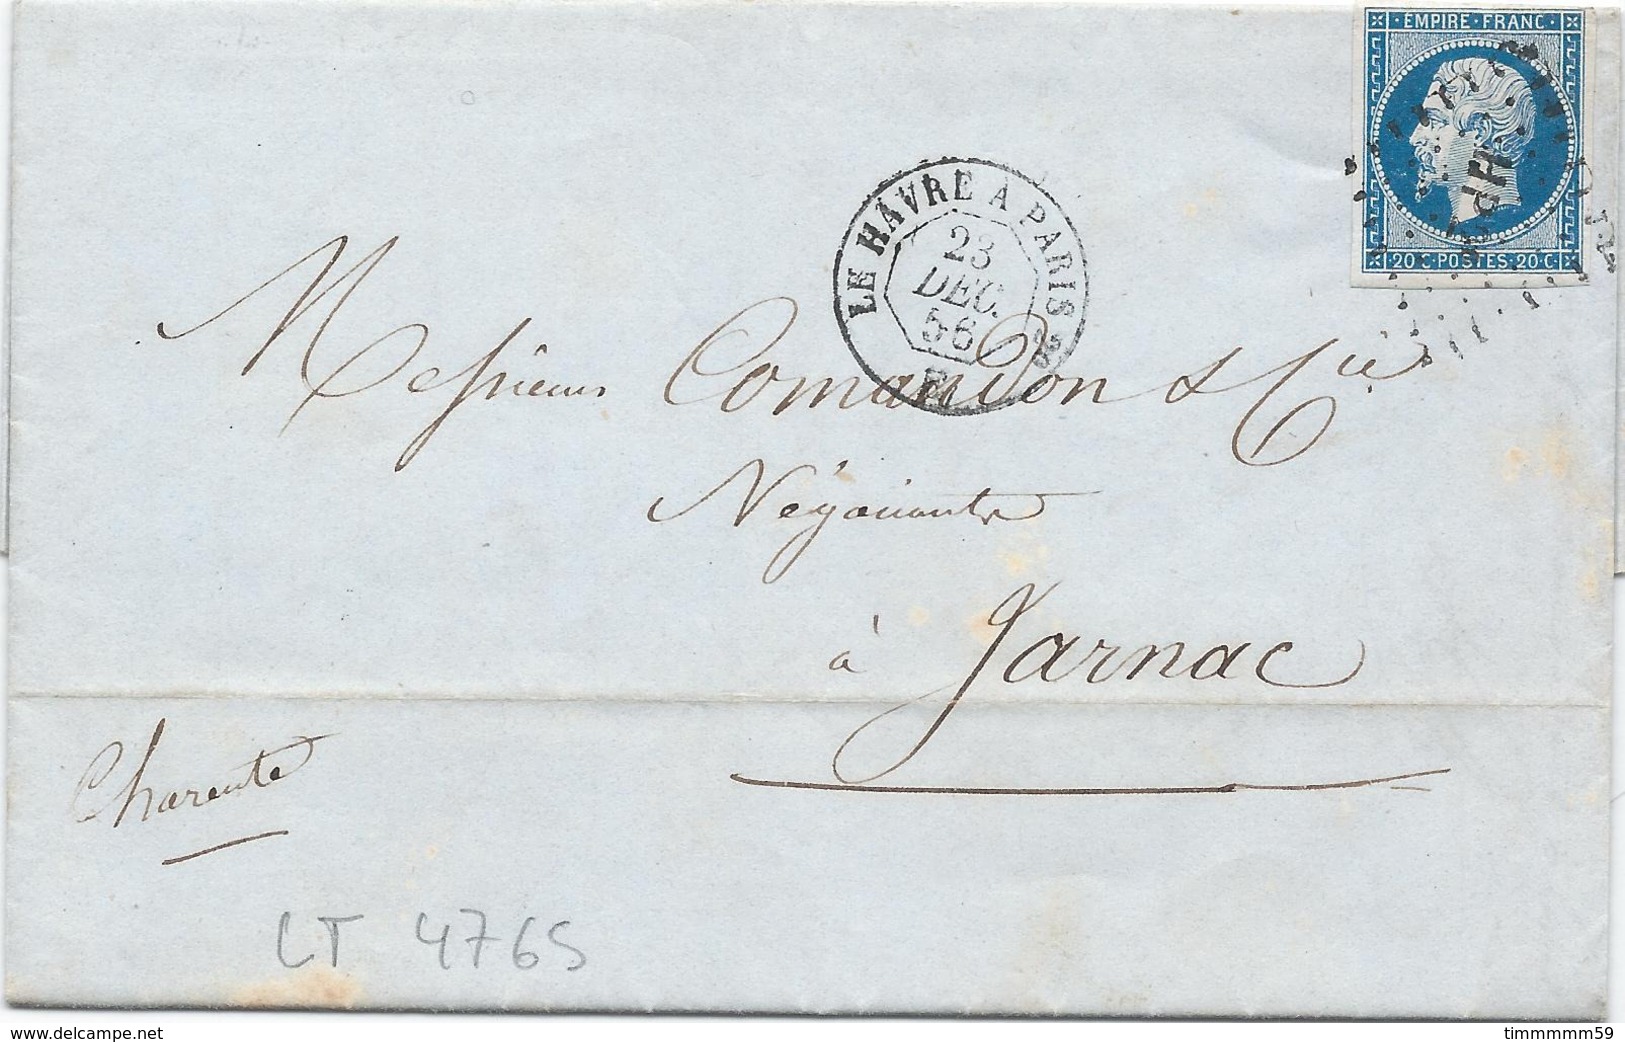 EMPIRE FRANC
20 C · POSTES · 20 C
LE HAVRE A PARIS
23
DEC.
56
Messieurs Comandon & Cie
Négociants
à Jarnac
Charente
LT 4765
www.delcampe.net
timmmmm59